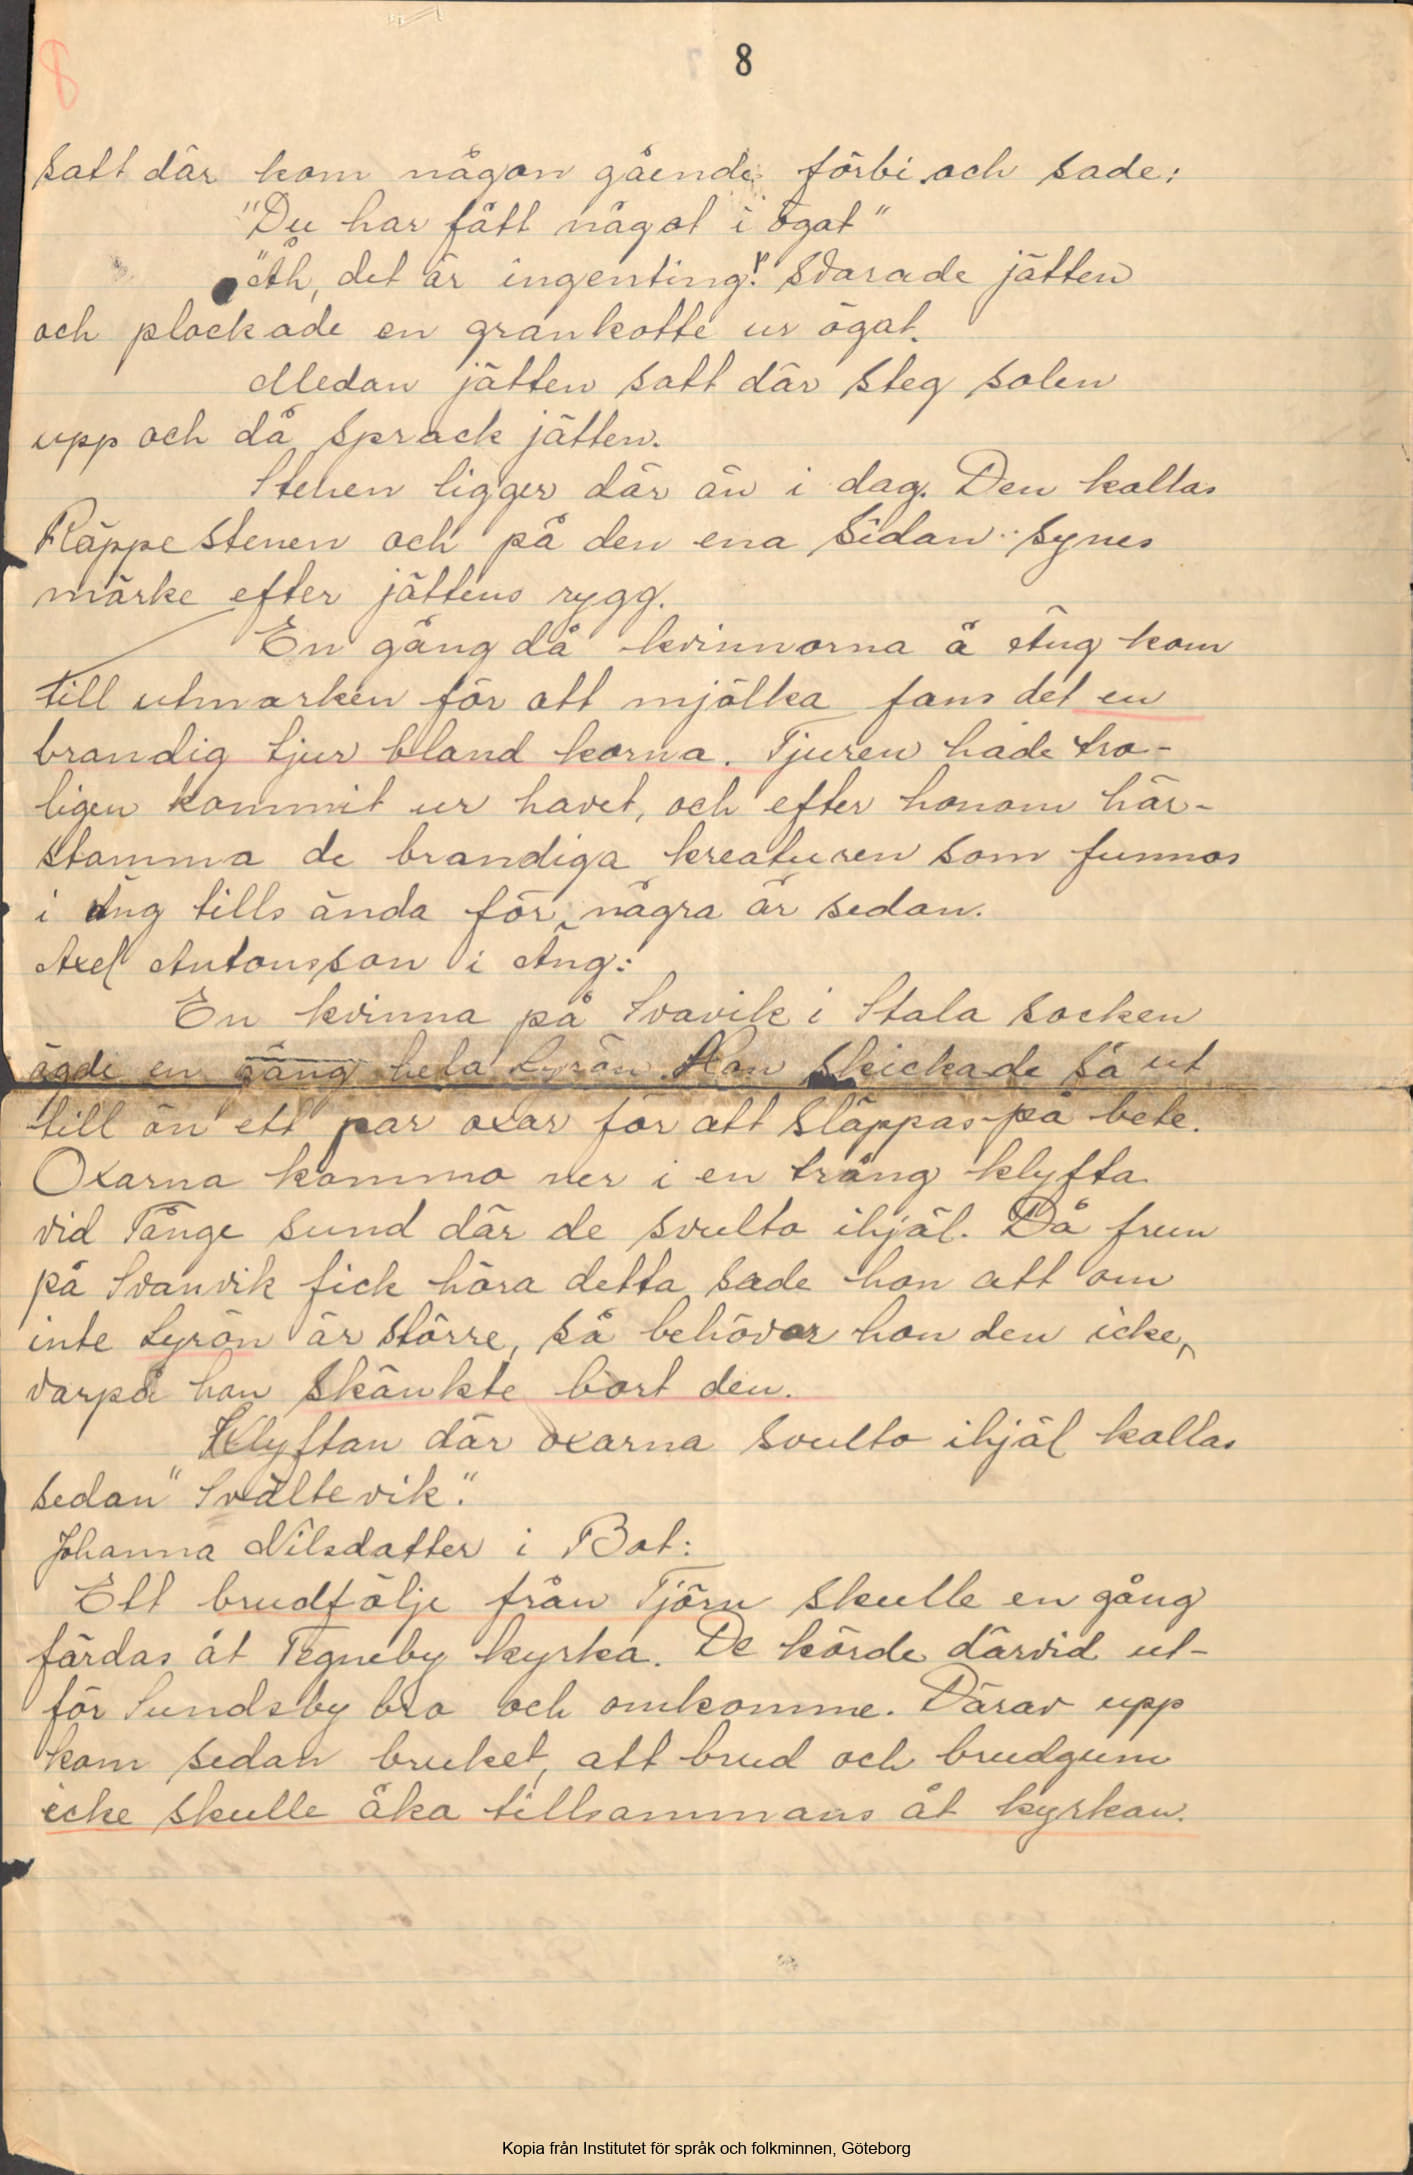 8
8
satt där kom någon gående förbi och sade:
"Du har fått något i ögat"
"Åh, det är ingenting!" svarade jätten
och plockade en grankotte ur ögat.
Medan jätten satt där steg solen
upp och då sprack jätten.
Stenen ligger där än i dag. Den kallas
Räppestenen och på den ena sidan synes
märke efter jättens rygg.
En gång då kvinnorna å Äng kom
till utmarken för att mjölka fans det en
brandig tjur bland korna. Tjuren hade tro-
ligen kommit ur havet, och efter honom här-
stamma de brandiga kreaturen som funnos
i Äng tills ända för några år sedan.
Axel Antonsson i Äng:
En kvinna på Svavik i Stala socken
ägde en gång hela Lyrön. Hon skickade så ut
till ön ett par oxar för att släppas på bete.
Oxarna kommo ner i en trång klyfta
vid Tånge sund där de svulto ihjäl. Då frun
på Svanvik fick höra detta sade hon att om
inte Lyrön är större, så behöver hon den icke,
varpå hon skänkte bort den.
Klyftan där oxarna svulto ihjäl kallas
sedan "Svältevik".
Johanna Nilsdotter i Bot:
Ett brudfölje från Tjörn skulle en gång
färdas åt Tegneby kyrka. De körde därvid ut-
för Sundsby bro och omkomme. Därav upp
kom sedan bruket, att brud och brudgum
icke skulle åka tillsammans åt kyrkan.
Kopia från Institutet för språk och folkminnen, Göteborg